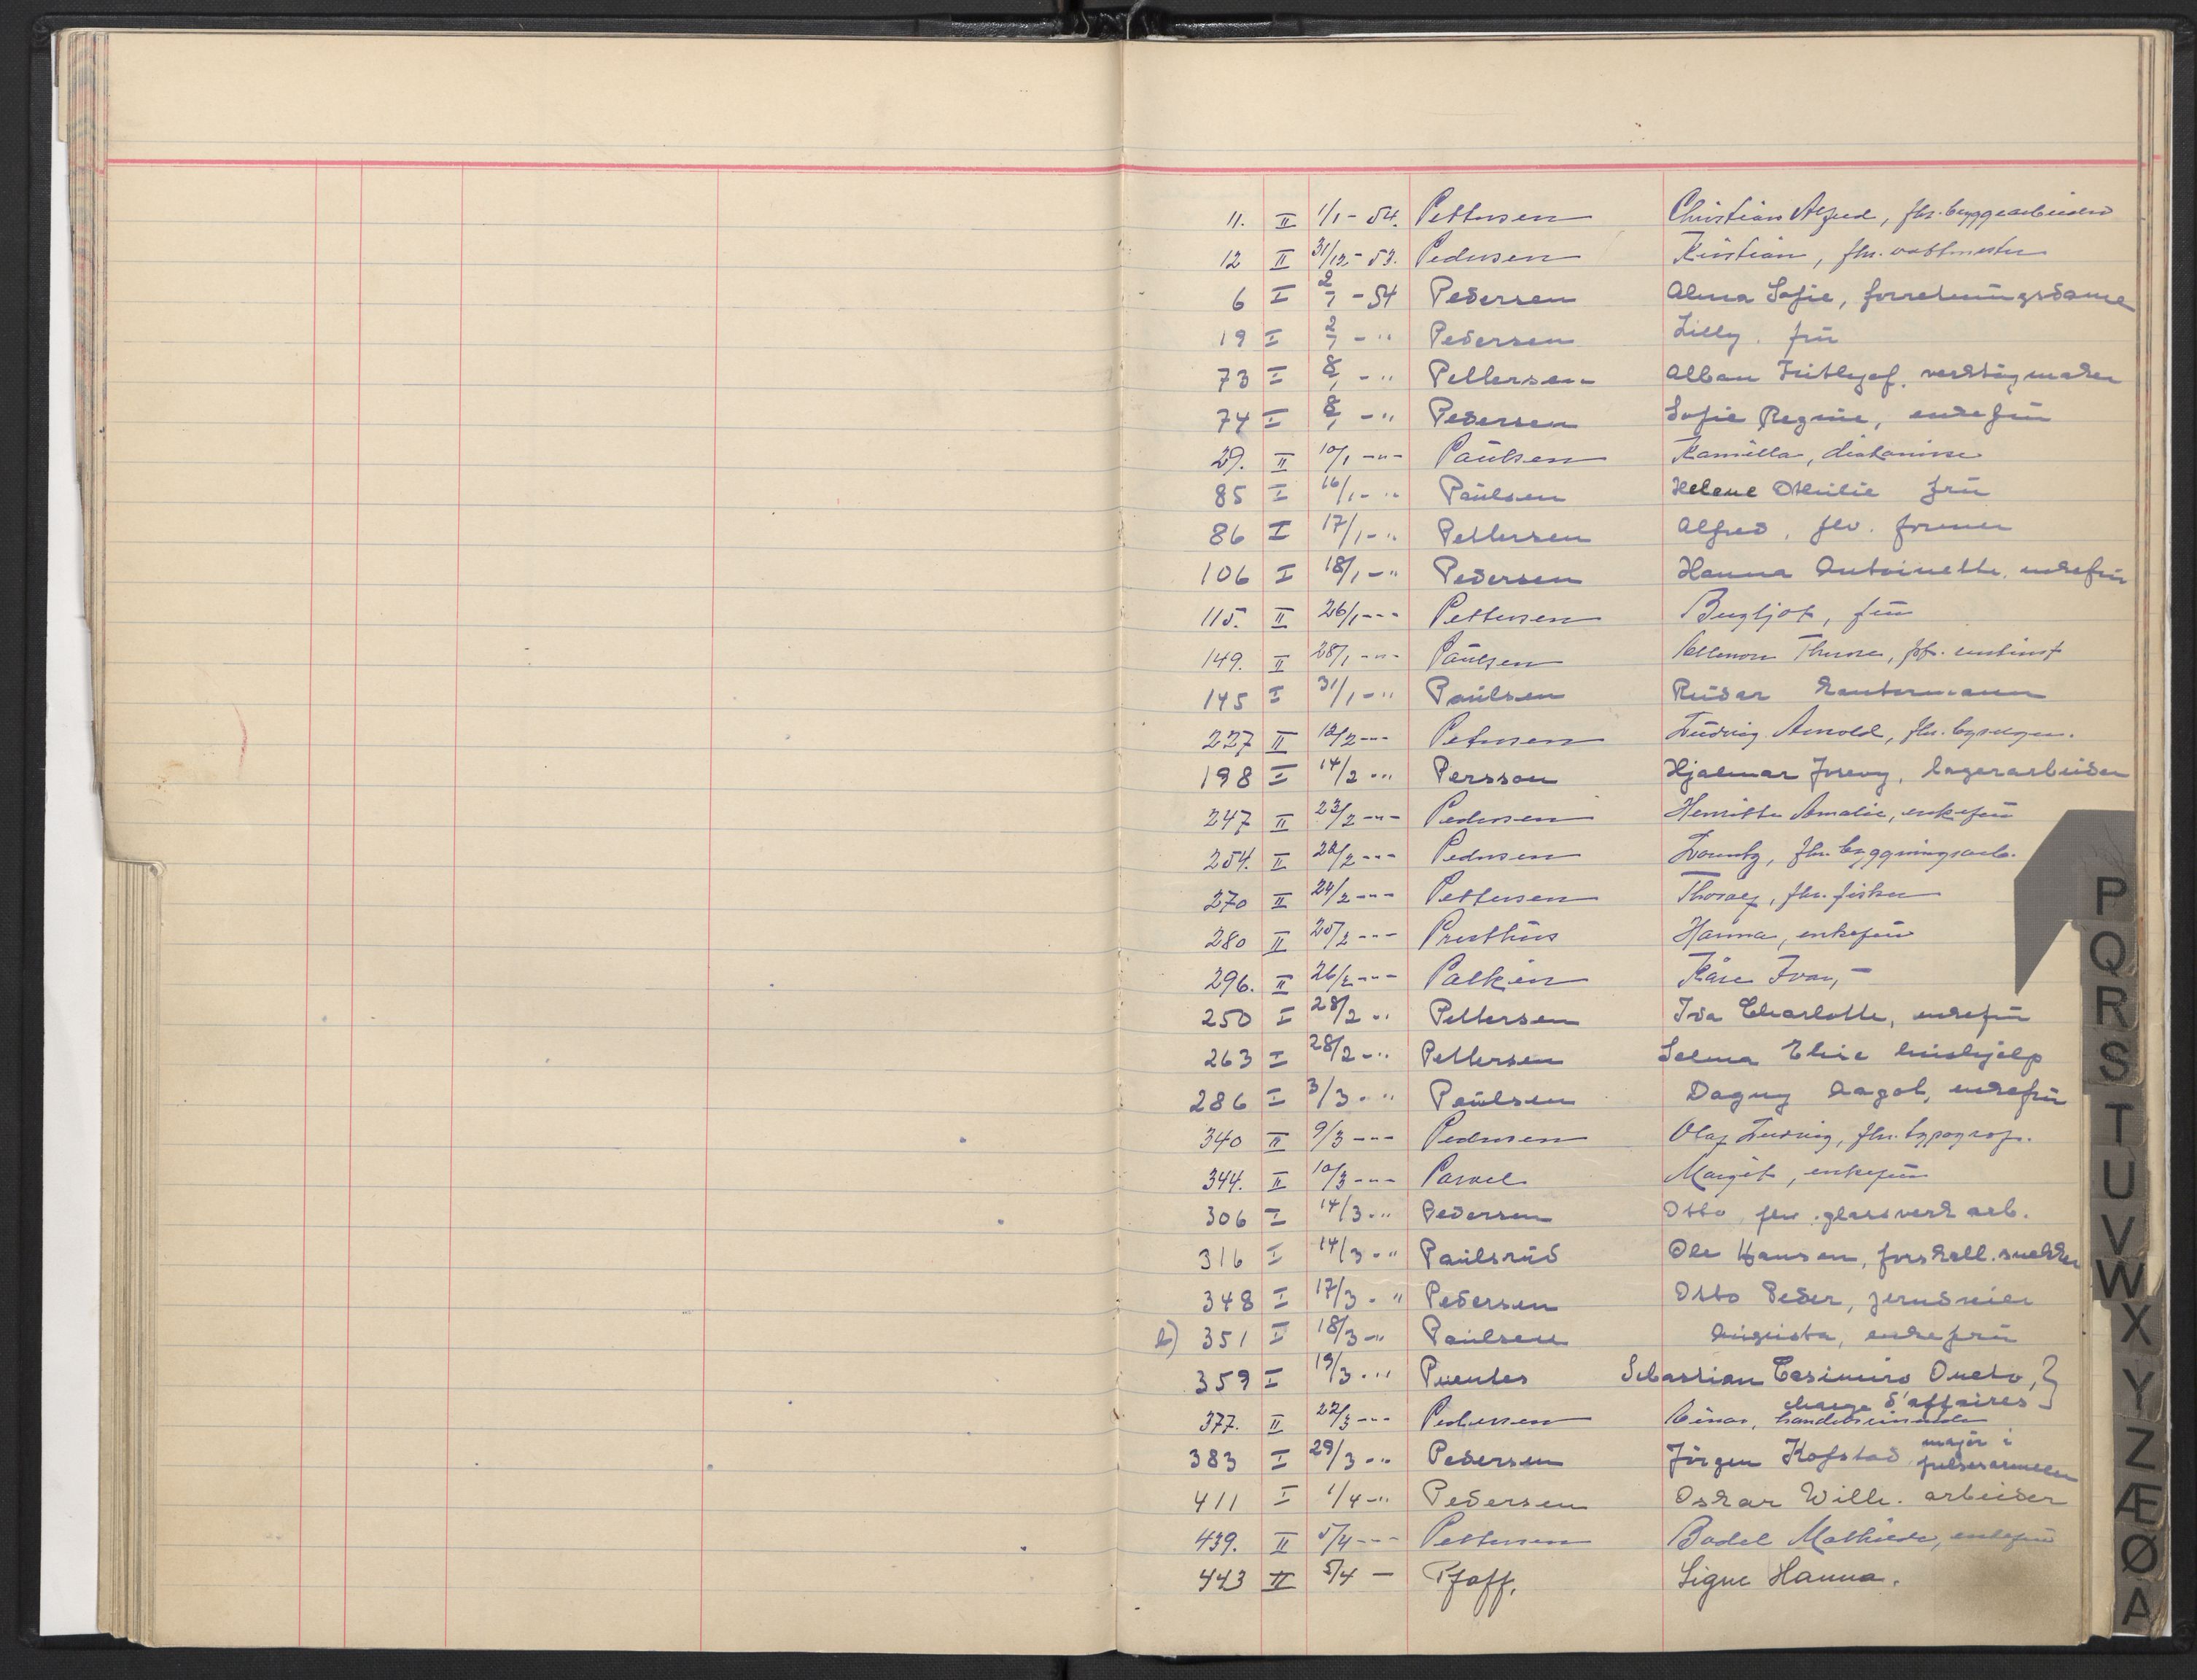 11. II 1/1 - 54. Pettersen Christian Alfred, fhv. byggearbeider
12 II 31/12 - 53. Pedersen Kristian, fhv. vaktmester
6 I 2/1 - 54 Pedersen Alma Sofie, forretningsdame
19 I 2/1 - " Pedersen Lilly, frü
73 I 8/1 - " Pettersen Alban Frithjof, verktøymaker
74 I 8/1 - " Pedersen Sofie Regine, enkefrü
29. II 10/1 - " - Paülsen Kamilla, diakonisse
85 I 16/1 - " Paülsen Helene Othilie frü
86 I 17/1 - " Pettersen Alfred, fhv. former
106 I 18/1 - " Pedersen Hanna Antoinette, enkefrü
115. II 26/1 - " - Pettersen Bergljot, frü
149. II 28/1 - " - Paülsen
145 I 31/1 - " Paülsen Reidar kontormann
227 II 12/2 - " - Petersen Lüdvig Arnold, fhv.
198 I 14/2 - " Persson Hjalmar lagerarbeider
247 II 23/2 - " - Pedersen Henriette Amalie, enkefrü
254. II 22/2 - " - Pedersen Lorentz, fhv. bygningsarb.
270 II 24/2 - " - Pettersen Thoralf, fhv. fisker
280 II 25/2 - " - Presthüs Hanna, enkefrü
296. II 26/2 - " - Palkin Kåre Ivar, -
250 I 28/2 - " Pettersen Ida Charlotte, enkefrü
263 I 28/2 - " Pettersen Selma Elise hüshjelp
286 I 3/3 - " Paülsen Dagny Aagot, enkefrü
340 II 9/3 - " - Pedersen Olaf Ludvig, fhv. typograf.
344. II 10/3 - " - Parvel Margit, enkefrü
306 I 14/3 - " Pedersen Otto fhv. glassverk arb.
316 I 14/3 - " Paülsrüd Ole Hansen, forhall. snekker
348 I 17/3 - " Pedersen Otto Peder,
b) 351 I 18/3 - " Paülsen Aügüsta, enkefrü
359 I 19/3 - " Puentes Sebastian Casimiro Oneto, }
charge d'affaires
377. II 22/3 - " - Pedersen Einar, handelsreisende
383 I 29/3 - " Pedersen Jörgen Kofstad, major i
frelsesarmeen
411 I 1/4 - " Pedersen Oskar Wilh. arbeider
439. II 5/4 - " - Pettersen Bodel Mathilde, enkefrü
443 II 5/4 - Pfaff, Signe Hanna.
P
Q
R
S
T
U
V
W
X
Y
Z
Æ
Ø
A